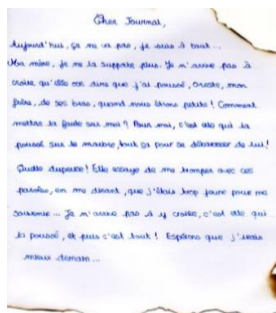 Cher Journal,
Aujourd'hui, ça ne va pas, je suis à bout...
Ma mère, je ne la supporte plus. Je n'arrive pas à
croire qu'elle ose dire que j'ai poussé, Oreste, mon
frère, de ses bras, quand nous étions petits ! Comment
mettre la faute sur moi ? Pour moi, c'est elle qui l'a
poussé sur le marbre tout ça pour se débarrasser de lui !
Quelle duperie ! Elle essaye de me tromper avec ces
paroles, en me disant, que j'étais trop jeune pour me
souvenir... Je n'arrive pas à y croire, c'est elle qui
l'a poussé, et puis c'est tout ! Espérons que j'irais
mieux demain...